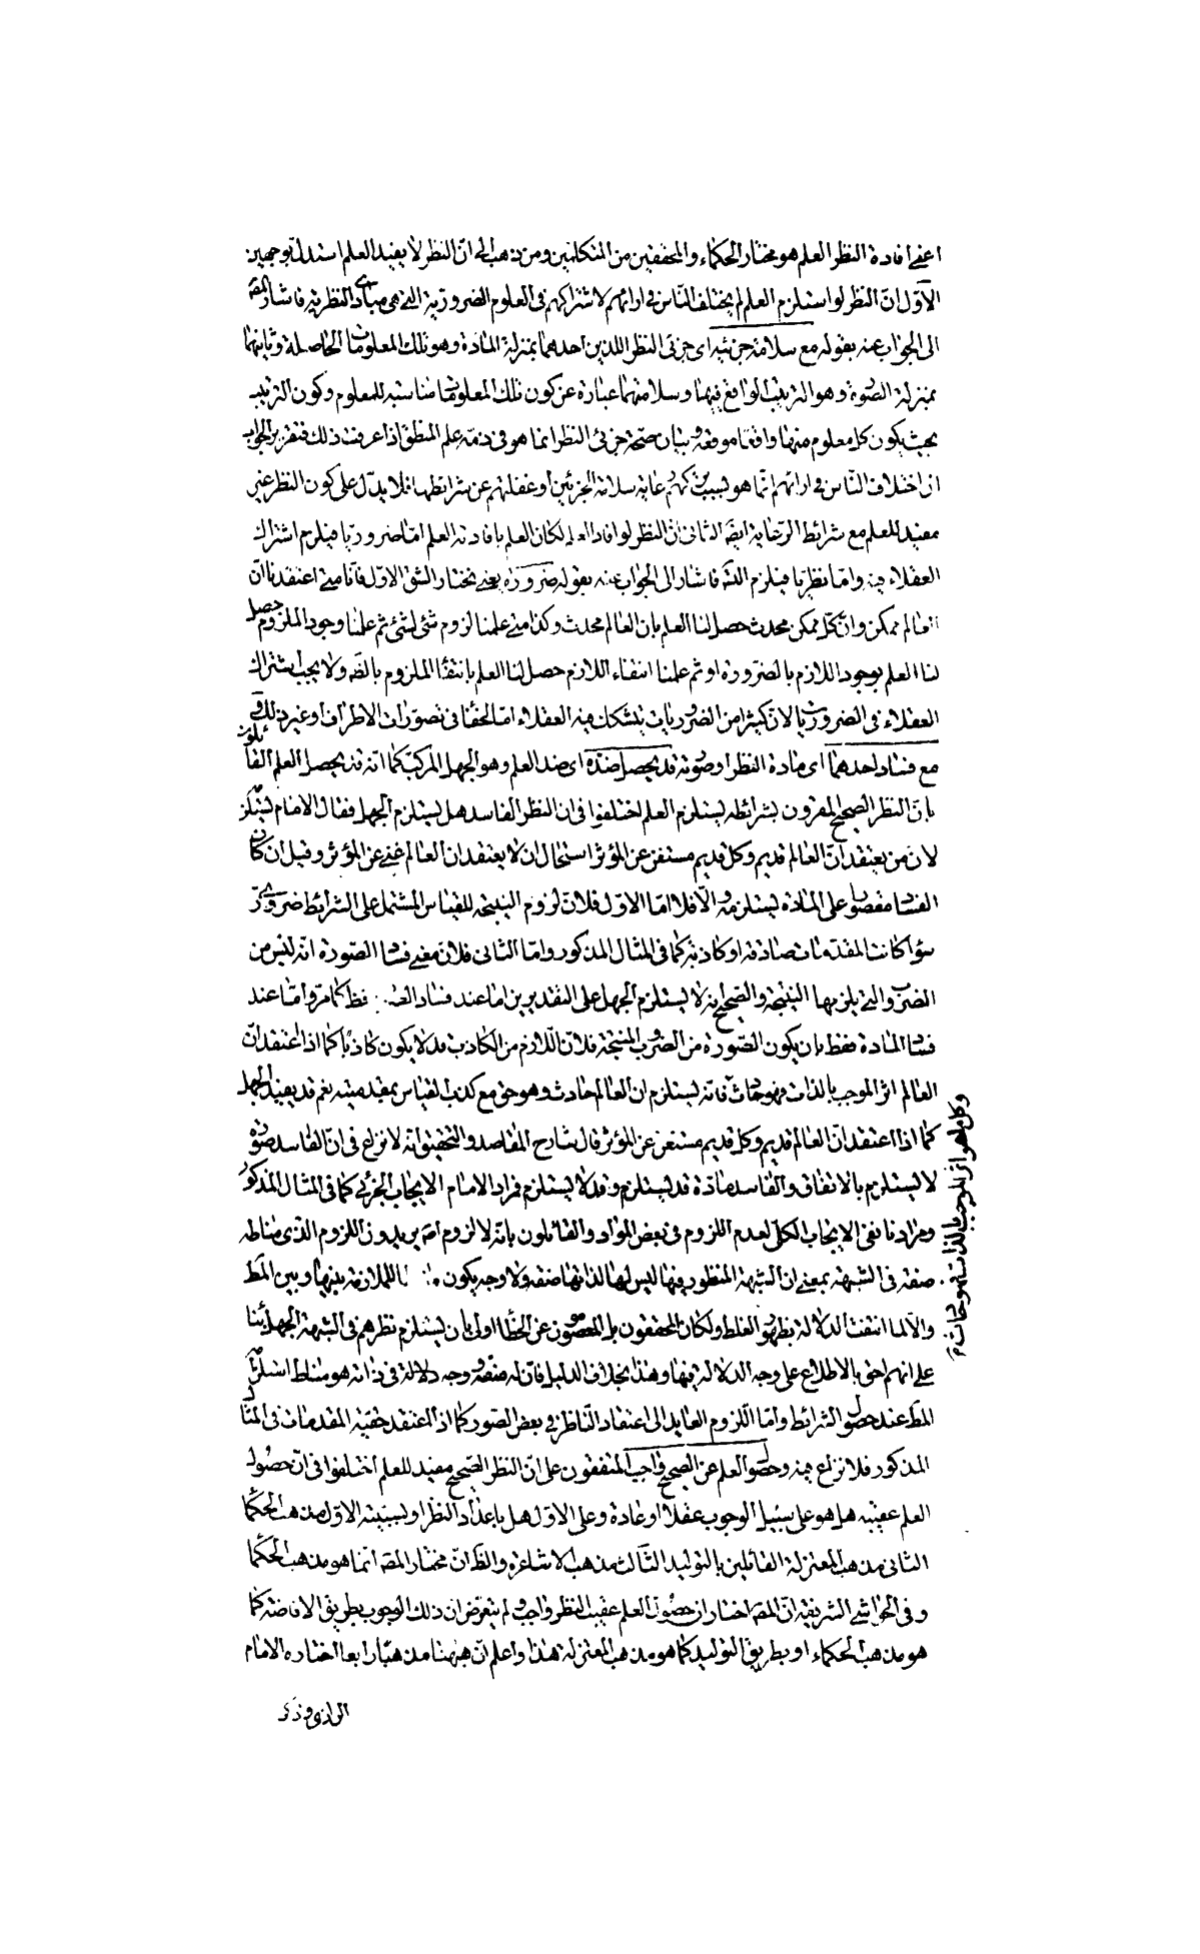 اعنى افادة النظر العلم هو مختار الحكماء والمحققين من المتكلمين ومن ذهب الى ان النظر لا يفيد العلم استدل بوجهين
الاول ان النظر لو استلزم العلم لم يختلف الناس فى ارائهم لاشتراكهم فى العلوم الضرورية التى هى مبادى النظرية فاشار المصـ
الى الجواب عنه بقوله مع سلامة جزئيه اى جزئى النظر اللذين احدهما بمنزلة المادة وهو تلك المعلومات الحاصلة وثانيهما
بمنزلة الصورة وهو الترتيب الواقع فيها وسلامتهما عبارة عن كون تلك المعلومات مناسبة للمعلوم وكون الترتيب
بحيث يكون كل معلوم منها واقعا موقعه وبيان صحة جزئى النظر انما هو فى ذمة علم المنطق اذا عرفت ذلك فتقرير الجواب
ان اختلاف الناس فى ارائهم انما هو بسبب تركهم رعاية سلامة الجزئين او غفلتهم عن شرائطها فلا يدل على كون النظر غير
مفيد للعلم مع شرائط الرعاية ايضا الثانى ان النظر لو افاد العلم لكان العلم بافادته العلم اما ضروريا فيلزم اشتراك
العقلاء فيه واما نظريا فيلزم التسـ فاشار الى الجواب عنه بقوله ضرورة يعنى نختار الشق الاول فانا متى اعتقدنا ان
العالم ممكن وان كل ممكن محدث حصل لنا العلم بان العالم محدث وكذا متى علمنا لزوم شئ لشئ ثم علمنا وجود الملزوم حصل
لنا العلم بوجود اللازم بالضرورة او ثم علمنا انتفاء اللازم حصل لنا العلم بانتفاء الملزوم بالضـ ولا يجب اشتراك
العقلاء فى الضروريات لان كثيرا من الضروريات يتشكك فيه العقلاء اما لخفاء فى تصورات الاطراف او غير ذلك و
مع فساد احدهما اى مادة النظر او صورته قد يحصل ضده اى ضد العلم وهو الجهل المركب كما انه قد يحصل العلم القائلون
بان النظر الصحيح المقرون بشرائطه يستلزم العلم اختلفوا فى ان النظر الفاسد هل يستلزم الجهل فقال الامام يستلزم
لان من يعتقد ان العالم قديم وكل قديم مستغن عن المؤثر استحال ان لا يعتقد ان العالم غنى عن المؤثر وقيل ان كان
الفساد مقصورا على المادة يستلزمه والا فلا اما الاول فلان لزوم النتيجة للقياس المشتمل على الشرائط ضرورى
سواء كانت المقدمات صادقة او كاذبة كما فى المثال المذكور واما الثانى فلان معنى فساد الصورة انه ليس من
الضروب التى يلزمها النتيجة والصحيح انه لا يستلزم الجهل على التقديرين اما عند فساد الصـ فظـ كما مر واما عند
فساد المادة فقط بان يكون الصورة من الضروب المنتجة فلان اللازم من الكاذب قد لا يكون كاذبا كما اذا اعتقد ان
العالم اثر الموجب بالذات فهو حادث فانه يستلزم ان العالم حادث وهو حق مع كذب القياس بمقدمتيه نعم قد يفيد الجهل
وكل ما هو اثر الموجب بالذات فهو حادث
كما اذا اعتقد ان العالم قديم وكل قديم مستغن عن المؤثر قال شارح المقاصد والتحقيق انه لا نزاع فى ان الفاسد صورة
لا يستلزم بالاتفاق والفاسد مادة قد يستلزم وقد لا يستلزم فمراد الامام الايجاب الجزئى كما فى المثال المذكور
ومرادنا نفى الايجاب الكلى لعدم اللزوم فى بعض المواد والقائلون بانه لا لزوم اصـ يريدون اللزوم الذى مناطه
صفة فى الشبهة بمعنى ان الشبهة المنظور فيها ليس لها لذاتها صفة ولا وجه يكون للملازمة بينها وبين المطـ
والا لما انتفت الدلالة بظهور الغلط ولكان المحققون بل المعصومون عن الخطأ اولى بان يستلزم نظرهم فى الشبهة الجهل بناء
على انهم احق بالاطلاع على وجه الدلالة فيها وهذا بخلاف الدليل فان له صفة ووجه دلالة فى ذاته هو مناط استلزام
المطـ عند حصول الشرائط واما اللزوم العايد الى اعتقاد الناظر فى بعض الصور كما اذا اعتقد حقية المقدمات فى المثال
المذكور فلا نزاع فيه وحصول العلم عن الصحيح واجب المتفقون على ان النظر الصحيح مفيد للعلم اختلفوا فى ان حصول
العلم عقيبه هل هو على سبيل الوجوب عقلا او عادة وعلى الاول هل باعداد النظر او بسببيته الاول مذهب الحكماء
الثانى مذهب المعتزلة القائلين بالتوليد الثالث مذهب الاشاعرة والظـ ان مختار المصـ انما هو مذهب الحكماء
وفى الحواشى الشريفية ان المصـ اختار ان حصول العلم عقيب النظر واجب ولم يتعرض ان ذلك الوجوب بطريق الافاضة كما
هو مذهب الحكماء او بطريق التوليد كما هو مذهب المعتزلة هذا واعلم ان هيهنا مذهبا رابعا اختاره الامام
الرازى وذكر